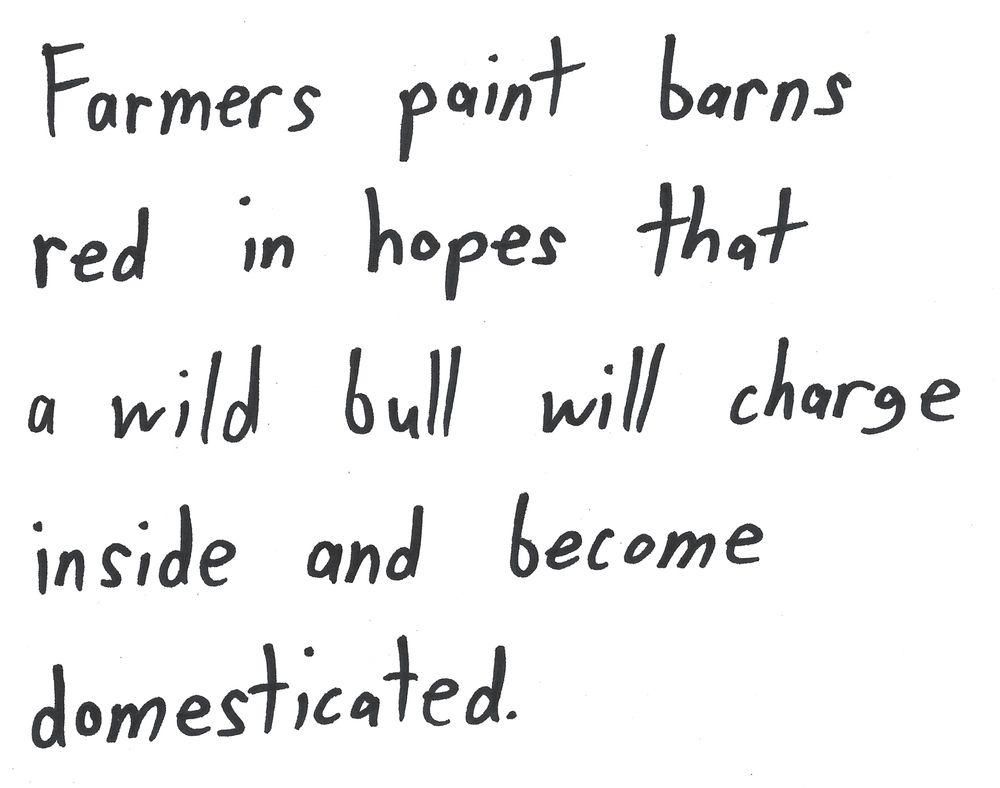 Farmers paint barns
red in hopes that
a wild bull will charge
inside and become
domesticated.